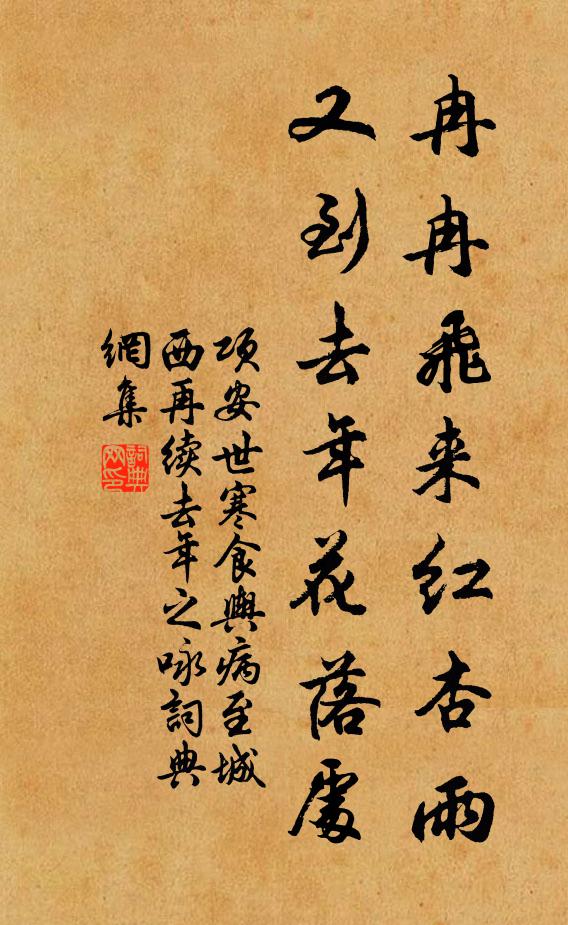 冉冉飛来红杏雨
又到去年花落處
项安世寒食與病至城
西再续去年之咏詞典
網集
詞典網印